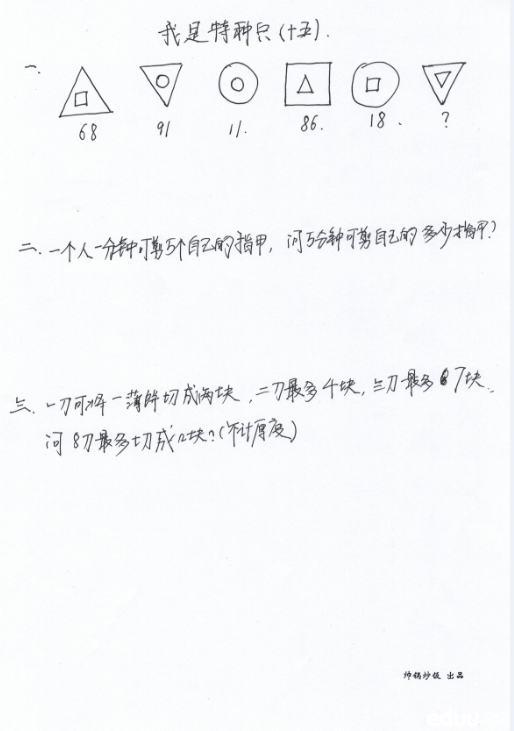 我是特种兵(十五).
一.
68 91 11. 86. 18. ?
二.一个人一分钟可剪5个自己的指甲,问5分钟可剪自己的多少指甲?
三.一刀可将一薄饼切成两块,二刀最多4块,三刀最多7块.
问8刀最多切成几块?(不计厚度)
帅锅炒饭 出品
eduu